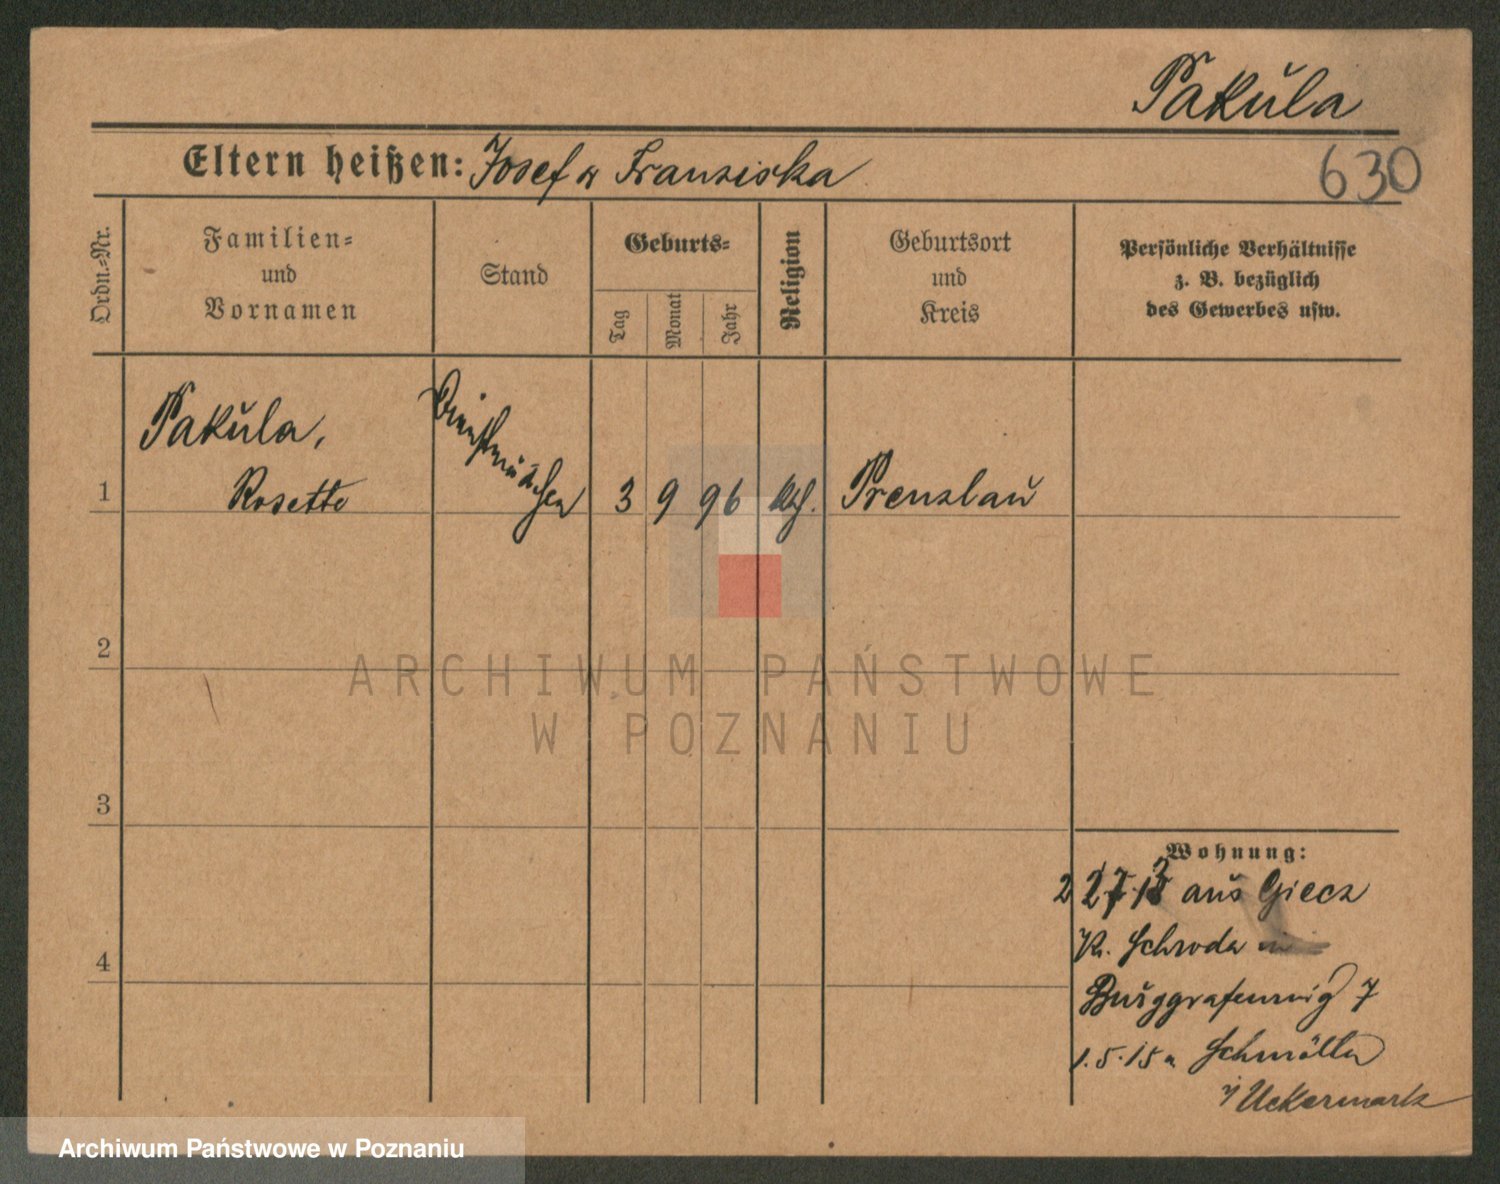 Pakula
Eltern heißen: Josef u Franziska
630
Ordn.-Nr.
Familien-
und
Vornamen
Stand
Geburts-
Tag
Monat
Jahr
Religion
Geburtsort
und
Kreis
Persönliche Verhältnisse
z. B. bezüglich
des Gewerbes usw.
1
Pakula,
Rosette
Dienstmädchen
3
9
96
kth.
Prenzlau
2
3
4
Wohnung:
aus Giecz
Kr. Schroda
Burggrafenweg 7
1.5.15 n Schmölln
i/ Uckermark
ARCHIWUM PAŃSTWOWE
W POZNANIU
Archiwum Państwowe w Poznaniu